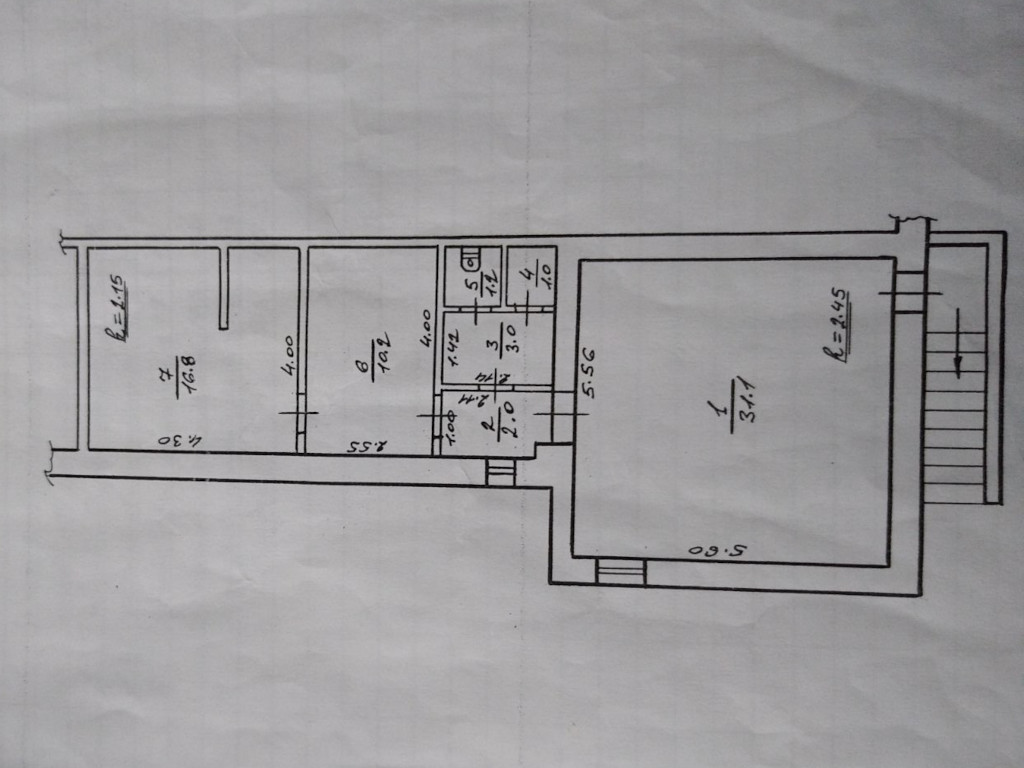 h=2.15
7
16.8
4.30
4.00
6
10.2
2.55
4.00
5
1.2
4
1.0
1.42
3
3.0
2.11
1.00
2
2.0
5.56
1
31.1
h=2.45
5.60